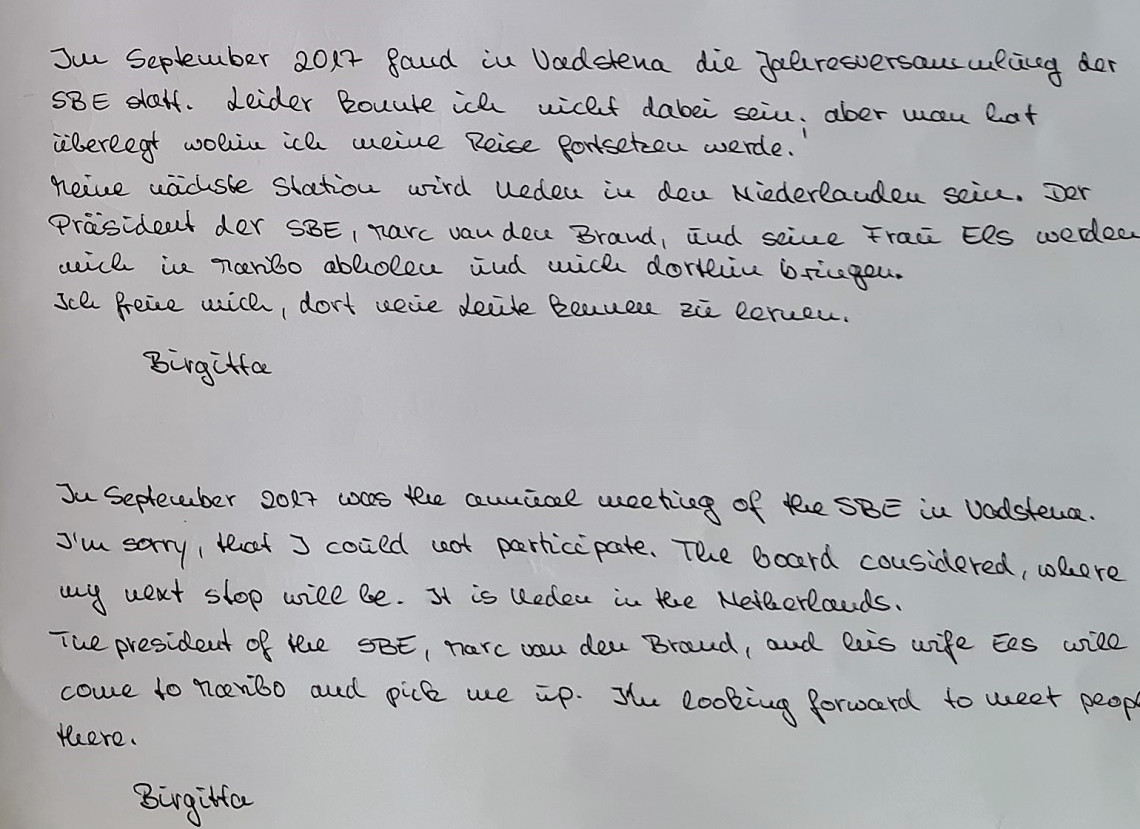 Im September 2017 fand in Vadstena die Jahresversammlung der
SBE statt. Leider konnte ich nicht dabei sein, aber man hat
überlegt wohin ich meine Reise fortsetzen werde.
Meine nächste Station wird Ueden in den Niederlanden sein. Der
Präsident der SBE, Marc van den Brand, und seine Frau Els werden
mich in Maribo abholen und mich dorthin bringen.
Ich freue mich, dort neue Leute kennen zu lernen.
Birgitta
In September 2017 was the annual meeting of the SBE in Vadstena.
I'm sorry, that I could not participate. The board considered, where
my next stop will be. It is Ueden in the Netherlands.
The president of the SBE, Marc van den Brand, and his wife Els will
come to Maribo and pick me up. I'm looking forward to meet peop
there.
Birgitta